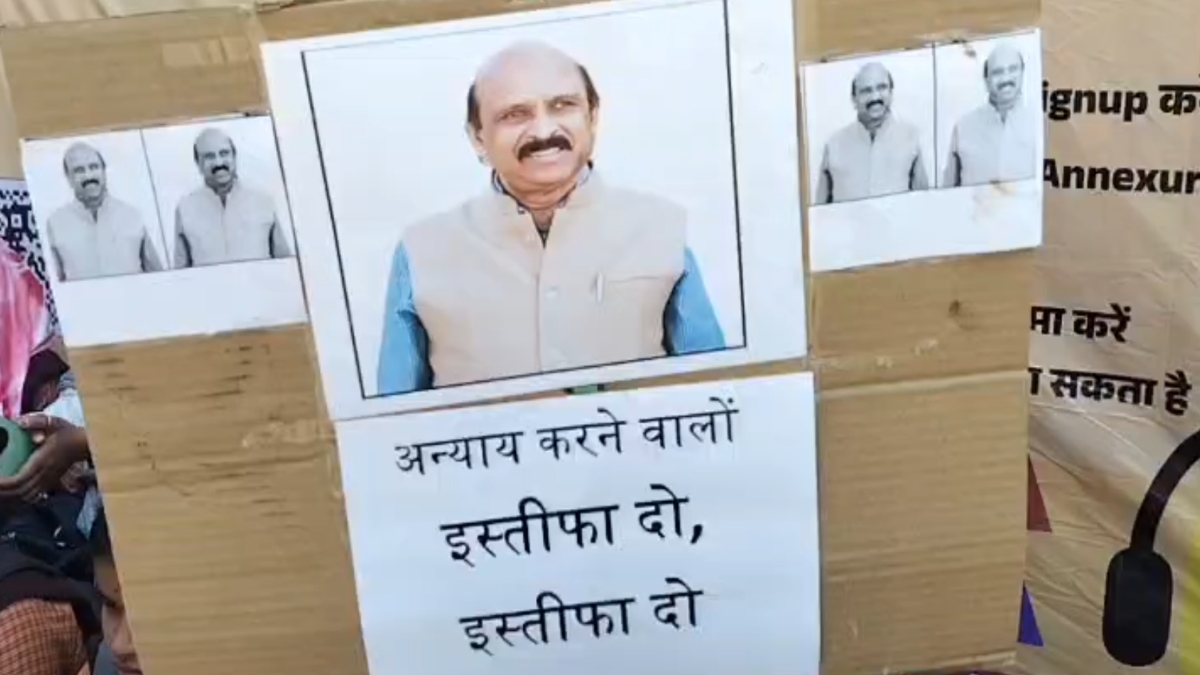 अन्याय करने वालों
इस्तीफा दो,
इस्तीफा दो
ignup क
Annexur
मा करें
सकता है